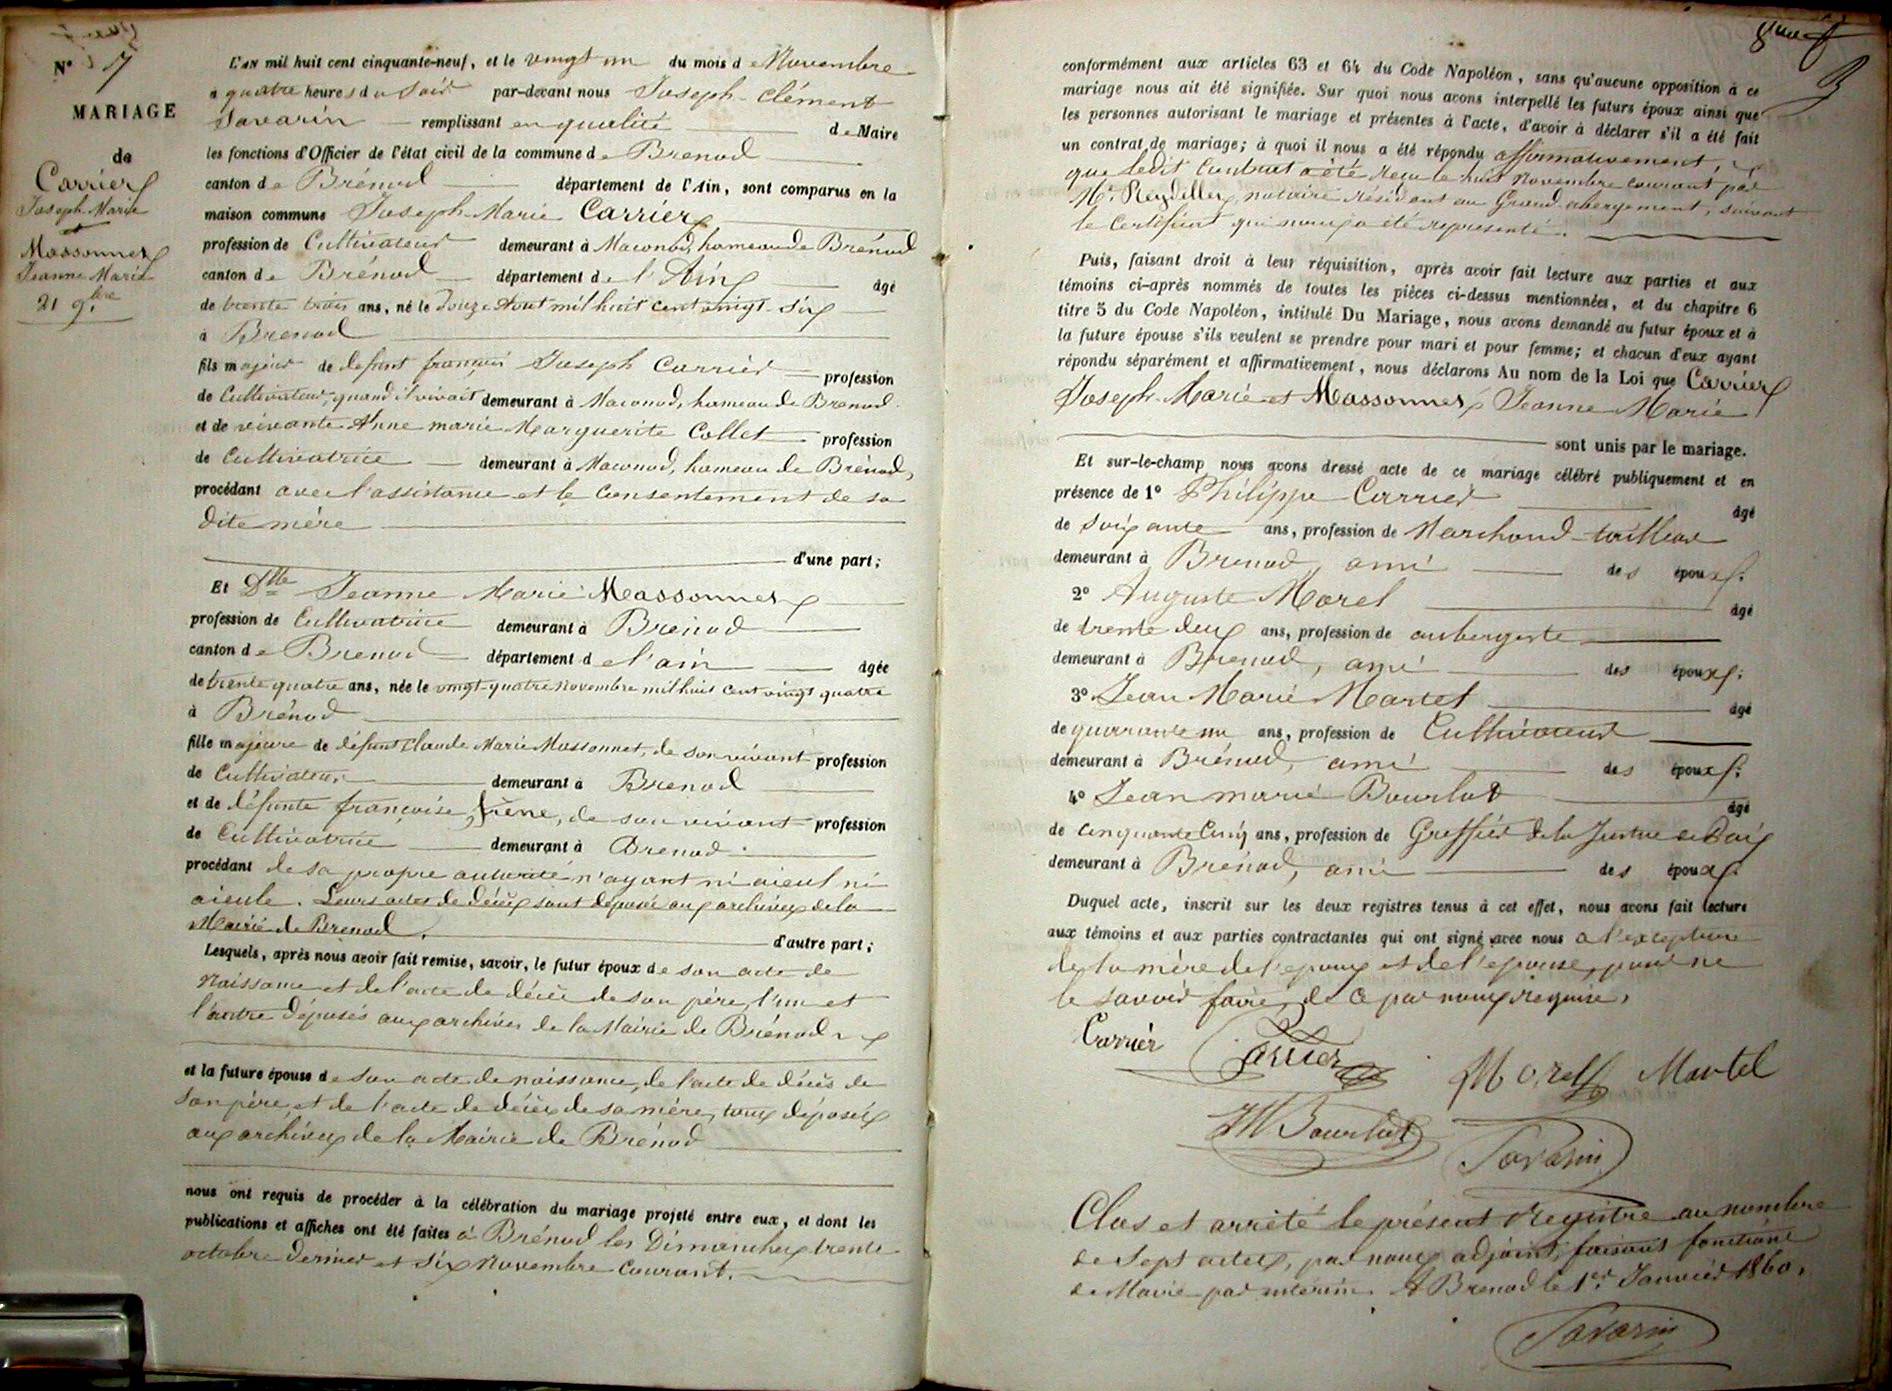 N° 7
MARIAGE
de
Carrier
Joseph Marie
Massonnet
Jeanne Marie
21 9bre
L'AN mil huit cent cinquante-neuf, et le vingt un du mois de Novembre
à quatre heures du Soir par-devant nous Joseph-Clément
Savarin remplissant en qualité de Maire
les fonctions d'Officier de l'état civil de la commune de Brenod
canton de Brénod département de l'Ain, sont comparus en la
maison commune Joseph Marie Carrier
profession de Cultivateur demeurant à Maconod, hameau de Brénod
canton de Brénod département de l'Ain âgé
de trente trois ans, né le Douze Aout mil huit cent vingt-six
à Brenod
fils majeur de défunt françois Joseph Carrier profession
de Cultivateur, quand il vivait demeurant à Maconod, hameau de Brenod
et de vivante Anne marie Marguerite Collet profession
de Cultivatrice demeurant à Maconod, hameau de Brénod,
procédant avec l'assistance et le consentement de sa
dite mère
d'une part;
Et Dlle Jeanne Marie Massonnet
profession de Cultivatrice demeurant à Brenod
canton de Brenod département de l'ain âgée
de trente quatre ans, née le vingt-quatre novembre mil huit cent vingt quatre
à Brénod
fille majeure de défunt Claude Marie Massonnet, de son vivant profession
de Cultivateur demeurant à Brenod
et de défunte françoise Irène, de son vivant profession
de Cultivatrice demeurant à Brenod.
procédant de sa propre autorité n'ayant ni aieul ni
aieule. Leurs actes de décès sont déposés aux archives de la
Mairie de Brenod. d'autre part;
Lesquels, après nous avoir fait remise, savoir, le futur époux de son acte de
Naissance et de l'acte de décès de son père, l'un et
l'autre déposés aux archives de la Mairie de Brénod
et la future épouse de son acte de naissance, de l'acte de décès de
son père, et de l'acte de décès de sa mère, tous déposés
aux archives de la Mairie de Brénod
nous ont requis de procéder à la célébration du mariage projeté entre eux, et dont les
publications et affiches ont été faites à Brénod les Dimanches trente
octobre dernier et six Novembre courant.
conformément aux articles 63 et 64 du Code Napoléon, sans qu'aucune opposition à ce
mariage nous ait été signifiée. Sur quoi nous avons interpellé les futurs époux ainsi que
les personnes autorisant le mariage et présentes à l'acte, d'avoir à déclarer s'il a été fait
un contrat de mariage; à quoi il nous a été répondu affirmativement,
que ledit Contrat a été reçu le huit Novembre courant par
Me Reydellet, notaire résidant au Grand-abergement, suivant
le Certificat qui nous a été représenté.
Puis, faisant droit à leur réquisition, après avoir fait lecture aux parties et aux
témoins ci-après nommés de toutes les pièces ci-dessus mentionnées, et du chapitre 6
titre 5 du Code Napoléon, intitulé Du Mariage, nous avons demandé au futur époux et à
la future épouse s'ils veulent se prendre pour mari et pour femme; et chacun d'eux ayant
répondu séparément et affirmativement, nous déclarons Au nom de la Loi que Carrier
Joseph-Marie et Massonnet Jeanne Marie
sont unis par le mariage.
Et sur-le-champ nous avons dressé acte de ce mariage célébré publiquement et en
présence de 1° Philippe Carrier âgé
de soixante ans, profession de Marchand-tailleur
demeurant à Brenod, ami des époux.
2° Auguste Morel âgé
de trente deux ans, profession de aubergiste
demeurant à Brenod, ami des époux.
3° Jean Marie Martel âgé
de quarante un ans, profession de Cultivateur
demeurant à Brénod, ami des époux.
4° Jean marie Bourlot âgé
de cinquante cinq ans, profession de Greffier de la Justice de Paix
demeurant à Brénod, ami des époux.
Duquel acte, inscrit sur les deux registres tenus à cet effet, nous avons fait lecture
aux témoins et aux parties contractantes qui ont signé avec nous à l'exception
de la mère de l'époux et de l'épouse, pour ne
le savoir faire, de ce par nous requise.
Carrier Carrier Morel Martel
JM Bourlot Savarin
Clos et arrêté le présent Registre au nombre
de Sept actes, par nous adjoint, faisant fonctions
de Maire par interim. A Brenod le 1er Janvier 1860.
Savarin